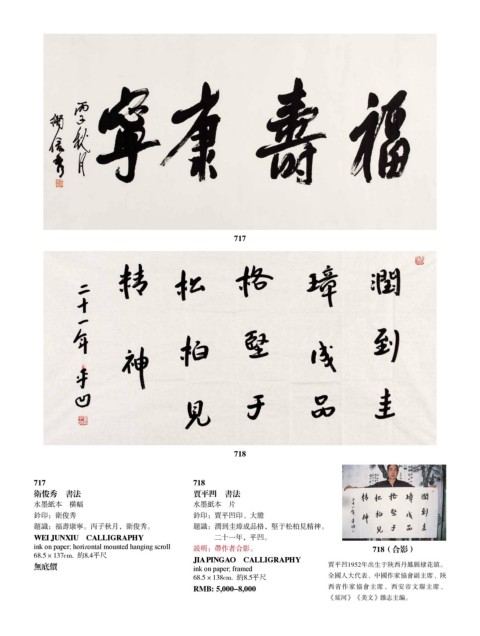 福壽康寧
丙子秋月
衛俊秀
717
潤到圭
璋成品
格堅于
松柏見
精神
二十一年 平凹
718
717
衛俊秀 書法
水墨紙本 橫幅
鈐印：衛俊秀
題識：福壽康寧。丙子秋月，衛俊秀。
WEI JUNXIU CALLIGRAPHY
ink on paper; horizontal mounted hanging scroll
68.5 × 137cm. 約8.4平尺
無底價
718
賈平凹 書法
水墨紙本 片
鈐印：賈平凹印、大雄
題識：潤到圭璋成品格，堅于松柏見精神。
二十一年，平凹。
說明：帶作者合影。
JIA PINGAO CALLIGRAPHY
ink on paper; framed
68.5 × 138cm. 約8.5平尺
RMB: 5,000–8,000
潤到圭
璋成品
格堅于
松柏見
精神
718（合影）
賈平凹1952年出生于陝西丹鳳縣棣花鎮。
全國人大代表、中國作家協會副主席、陝
西省作家協會主席、西安市文聯主席、
《延河》《美文》雜志主編。